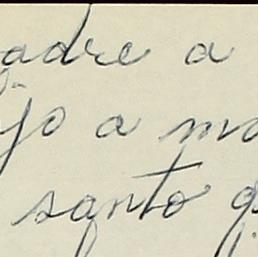 adre a
jo a
santo